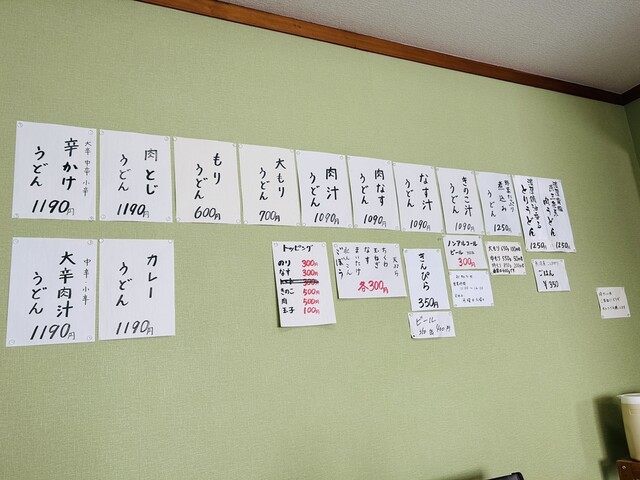 大辛 中辛 小辛
辛かけ
うどん
1190円
肉とじ
うどん
1190円
もり
うどん
600円
大もり
うどん
700円
肉汁
うどん
1090円
肉なす
うどん
1090円
なす汁
うどん
1090円
きのこ汁
うどん
1090円
野菜たっぷり
煮込み
うどん
1250円
肉うどん
1250円
とりうどん
1250円
中辛 小辛
大辛肉汁
うどん
1190円
カレー
うどん
1190円
トッピング
のり 300円
なす 300円
300円
きのこ 500円
肉 500円
玉子 100円
天ぷら
ちくわ
たまねぎ
なす
まいたけ
ごぼう
各300円
きんぴら
350円
ノンアルコール
ビール
300円
ごはん
¥350
ビール